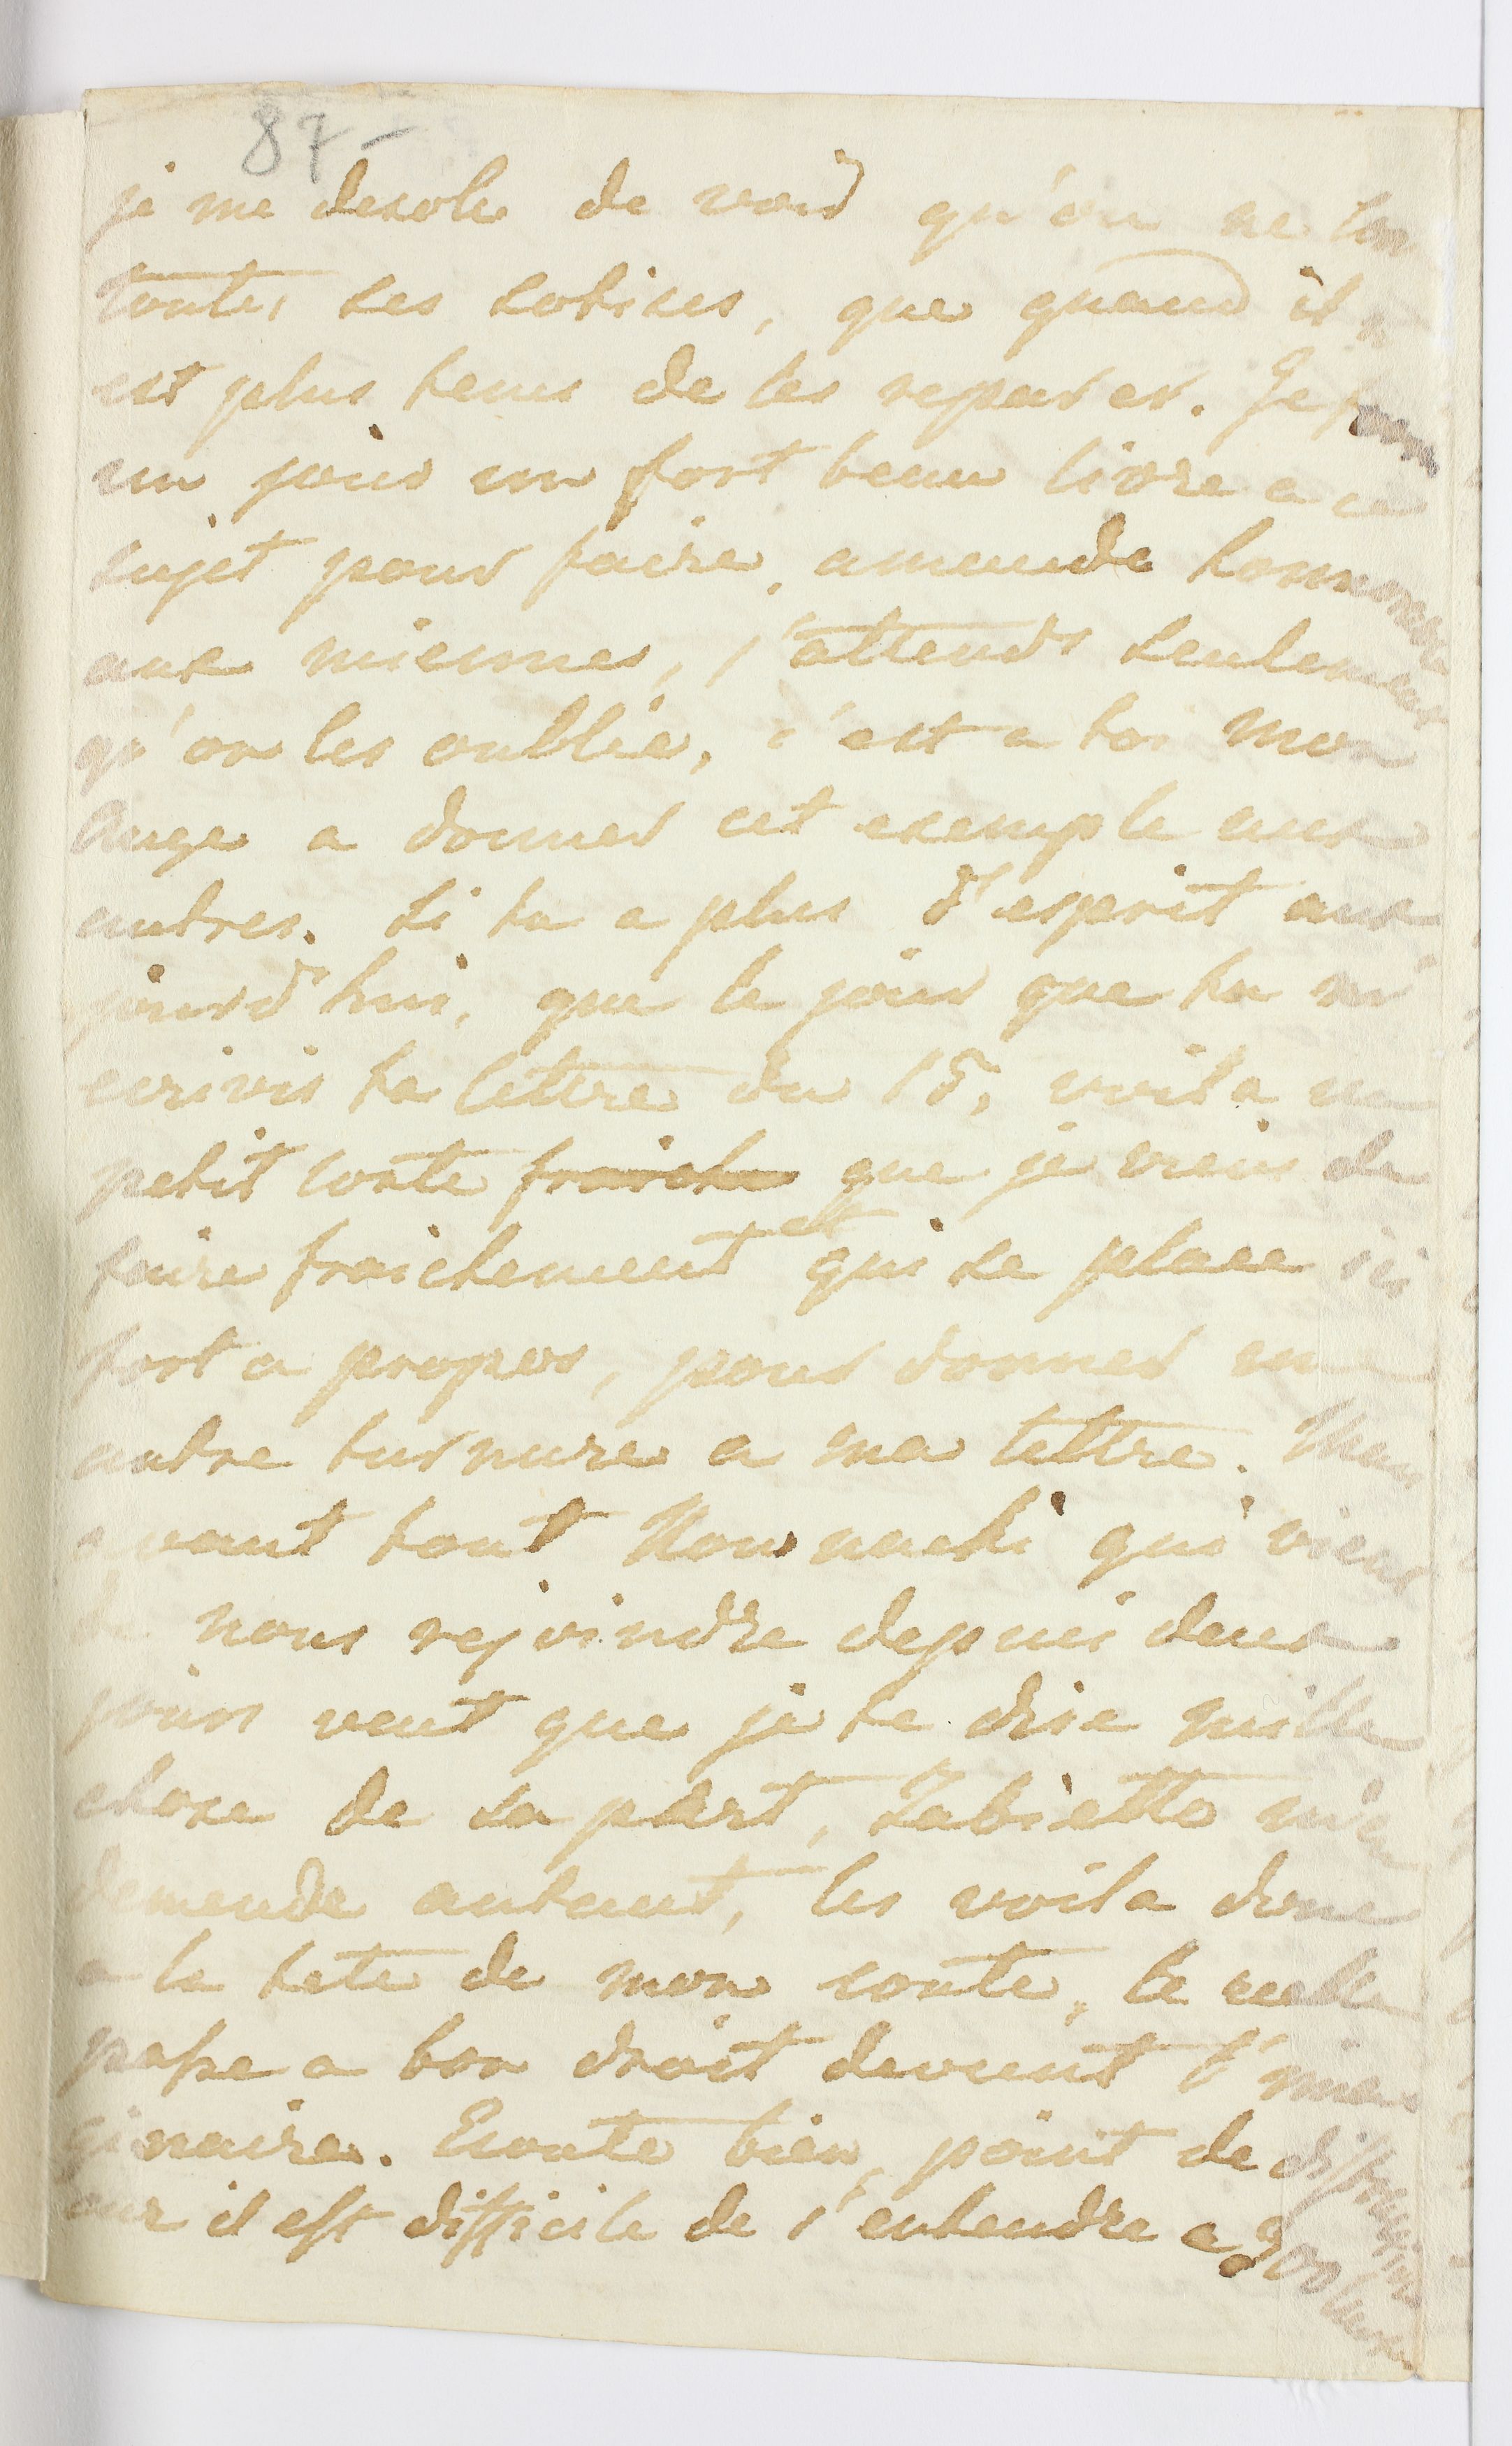 87-
je me desole de voir qu'on ne
toutes ses sotises, que quand il n
est plus tems de les reparer. Je
un jour un fort beau livre a ce
sujet pour faire, amende honnorable
aux miennes, j'attends seulement
qu'on les oublie, c'est a toi mon
Ange a donner cet exemple aux
autres. Si tu a plus d'esprit aux
jourd'hui, que le jour que tu m
ecrivis ta lettre du 15, voila un
petit conte fraiche que je viens de
faire fraichement et qui se place ici
fort a propos, pour donner un
autre turnure a ma lettre. Mais
avant tout qui vient
de nous rejoindre depuis deux
jours veut que je te dise mille
chose de sa part, Zabietto m'en
demende autant, les voila donc
a la tete de mon conte, le reelle
passe a bon droit devant l'imma
ginaire. Ecoute bien, point de distraction
car il est difficile de s'entendre a 300 lieues